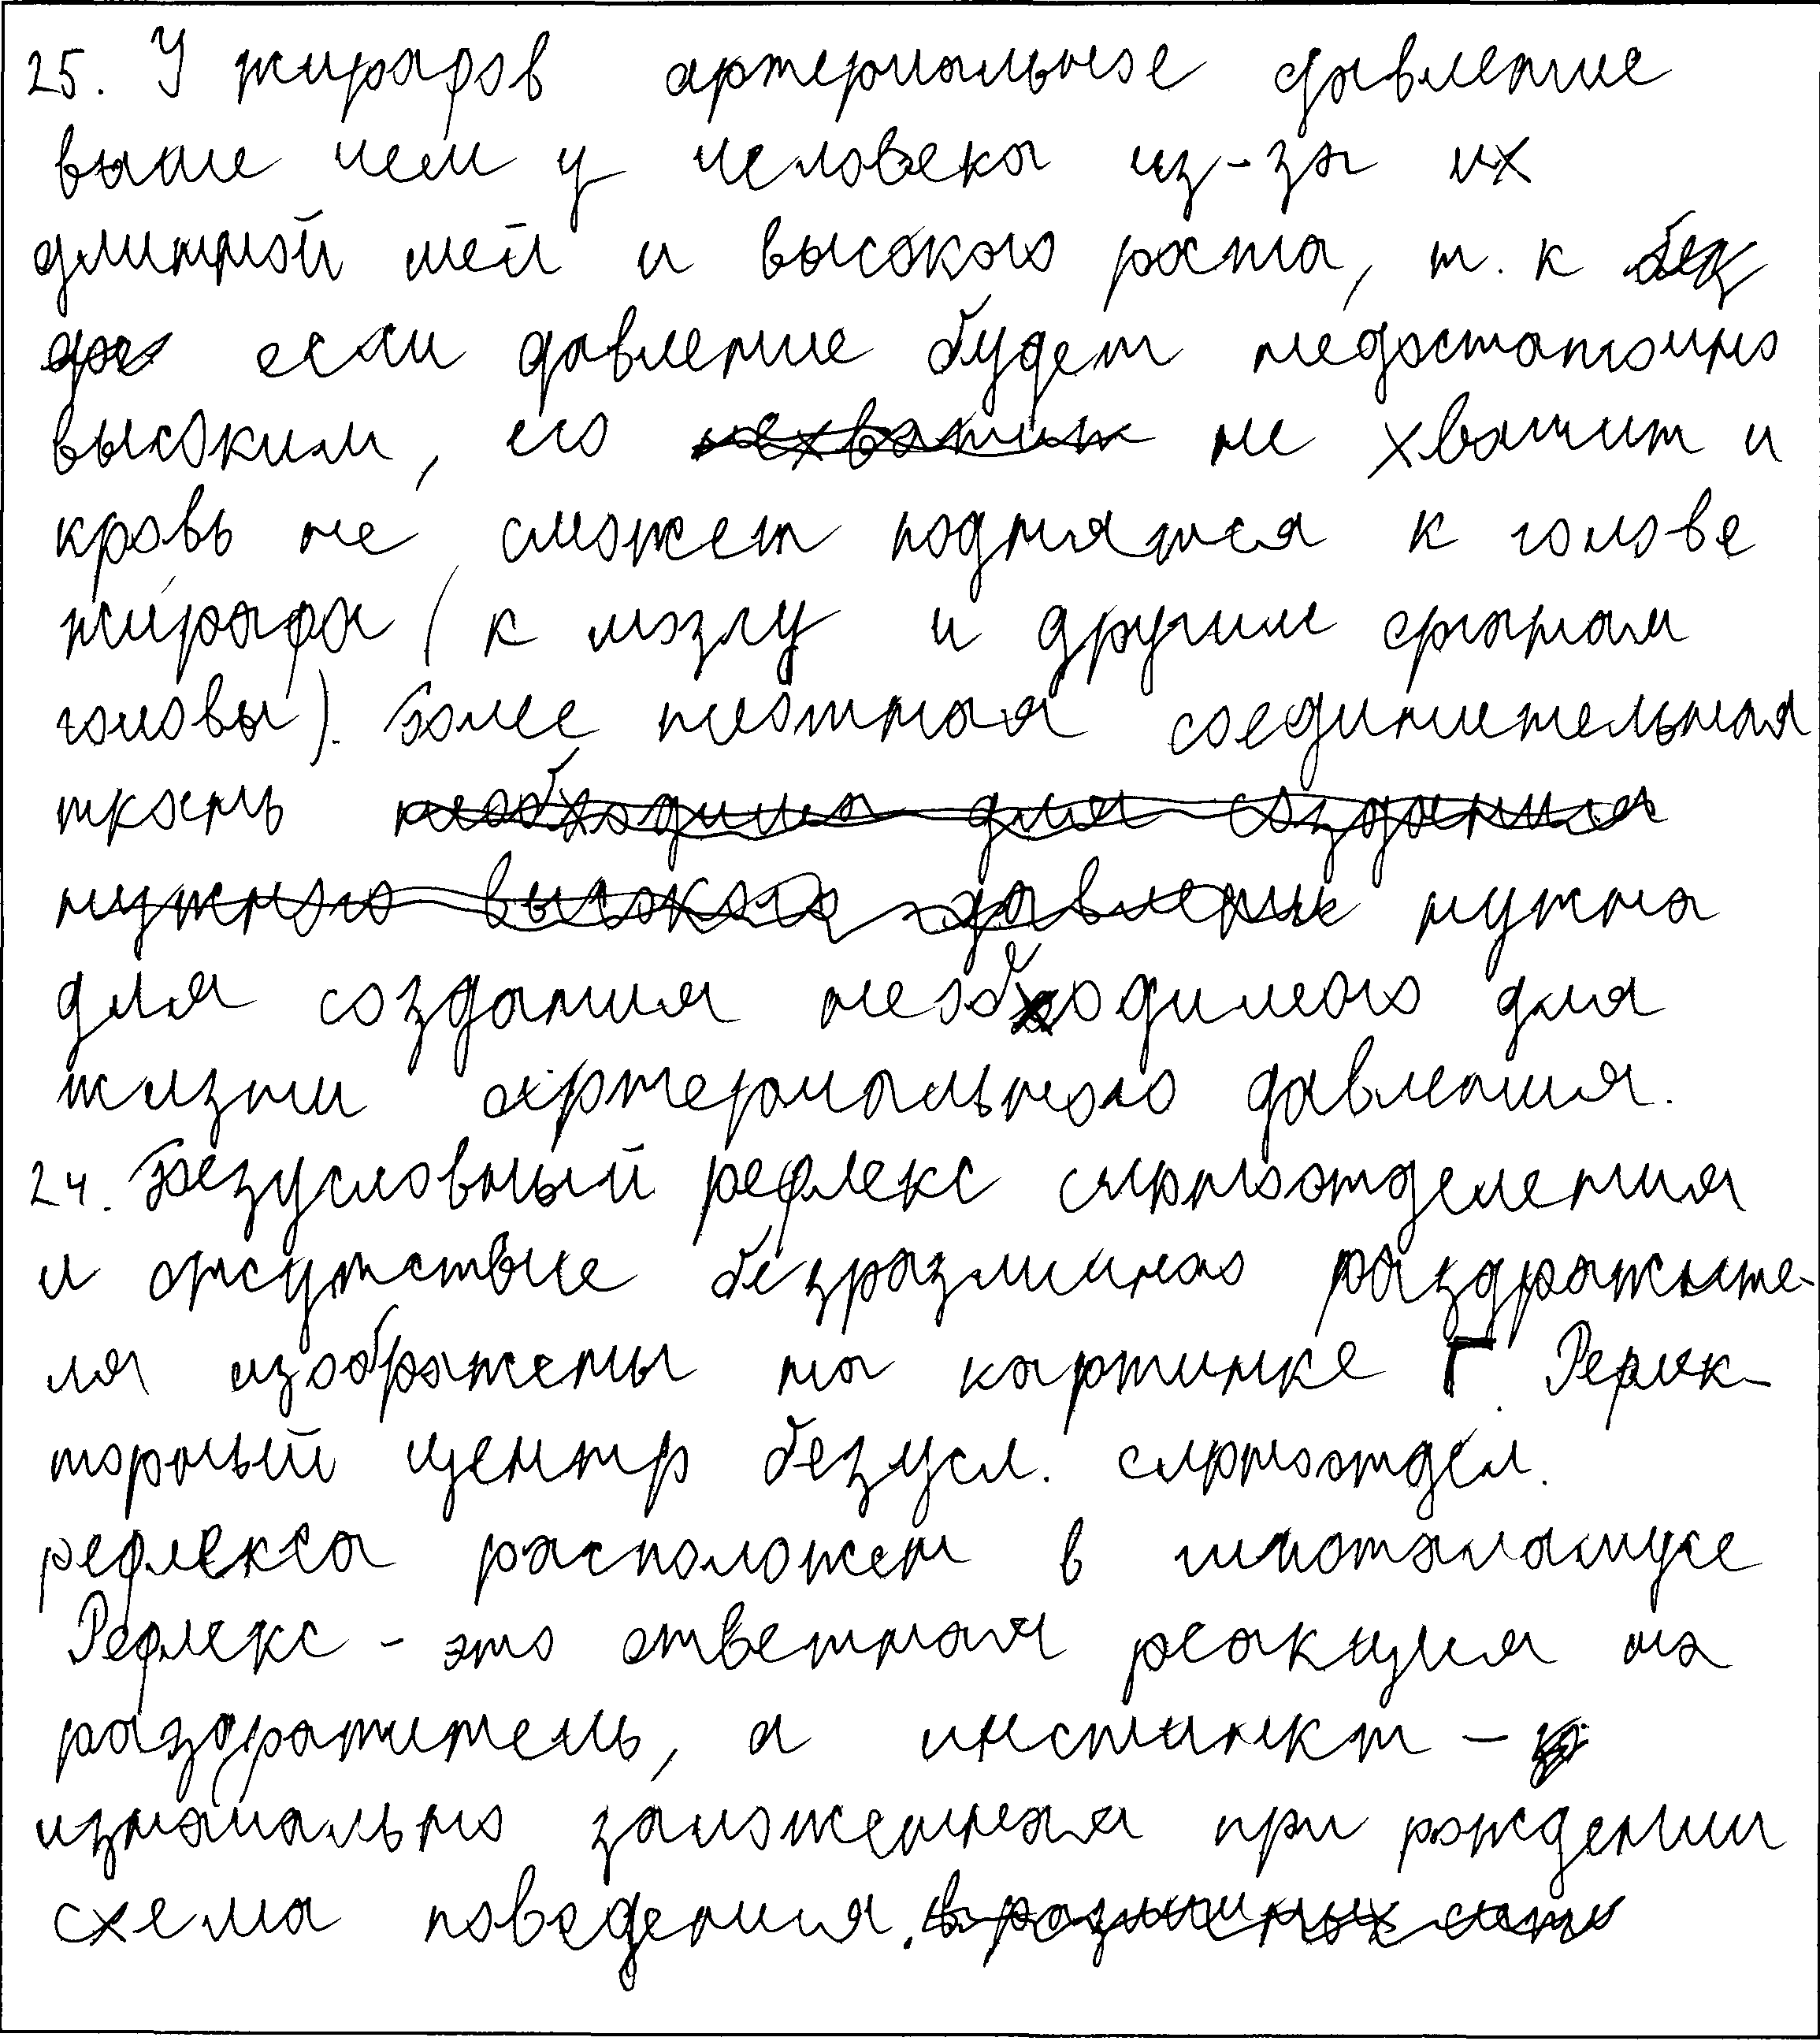 25. У жирафов артериальное давление
выше чем у человека из-за их
длинной шеи и высокого роста, т. к без
дос если давление будет недостаточно
высоким, его нехватит не хватит и
кровь не сможет поднятся к голове
жирафа (к мозгу и другим органам
головы). Более плотная соединительная
ткань необходима для создания
нужного высокого давления нужна
для создания необходимого для
жизни артериального давления.
24. Безусловный рефлекс слюноотделения
и отсутствие безразличного раздражите-
ля изображены на картинке Г. Рефлек-
торный центр безусл. слюноотдел.
рефлекса расположен в гипоталамусе
Рефлекс - это ответная реакция на
раздражитель, а инстинкт -
изначально заложенная при рождении
схема поведения. в различных ситу